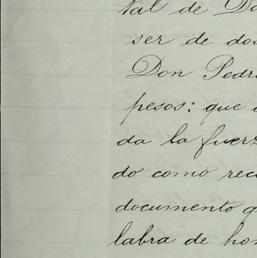 tal de Do
ser de dos
Don Pedr
pesos: que
da la fuerz
do como rec
documento q
labra de hon